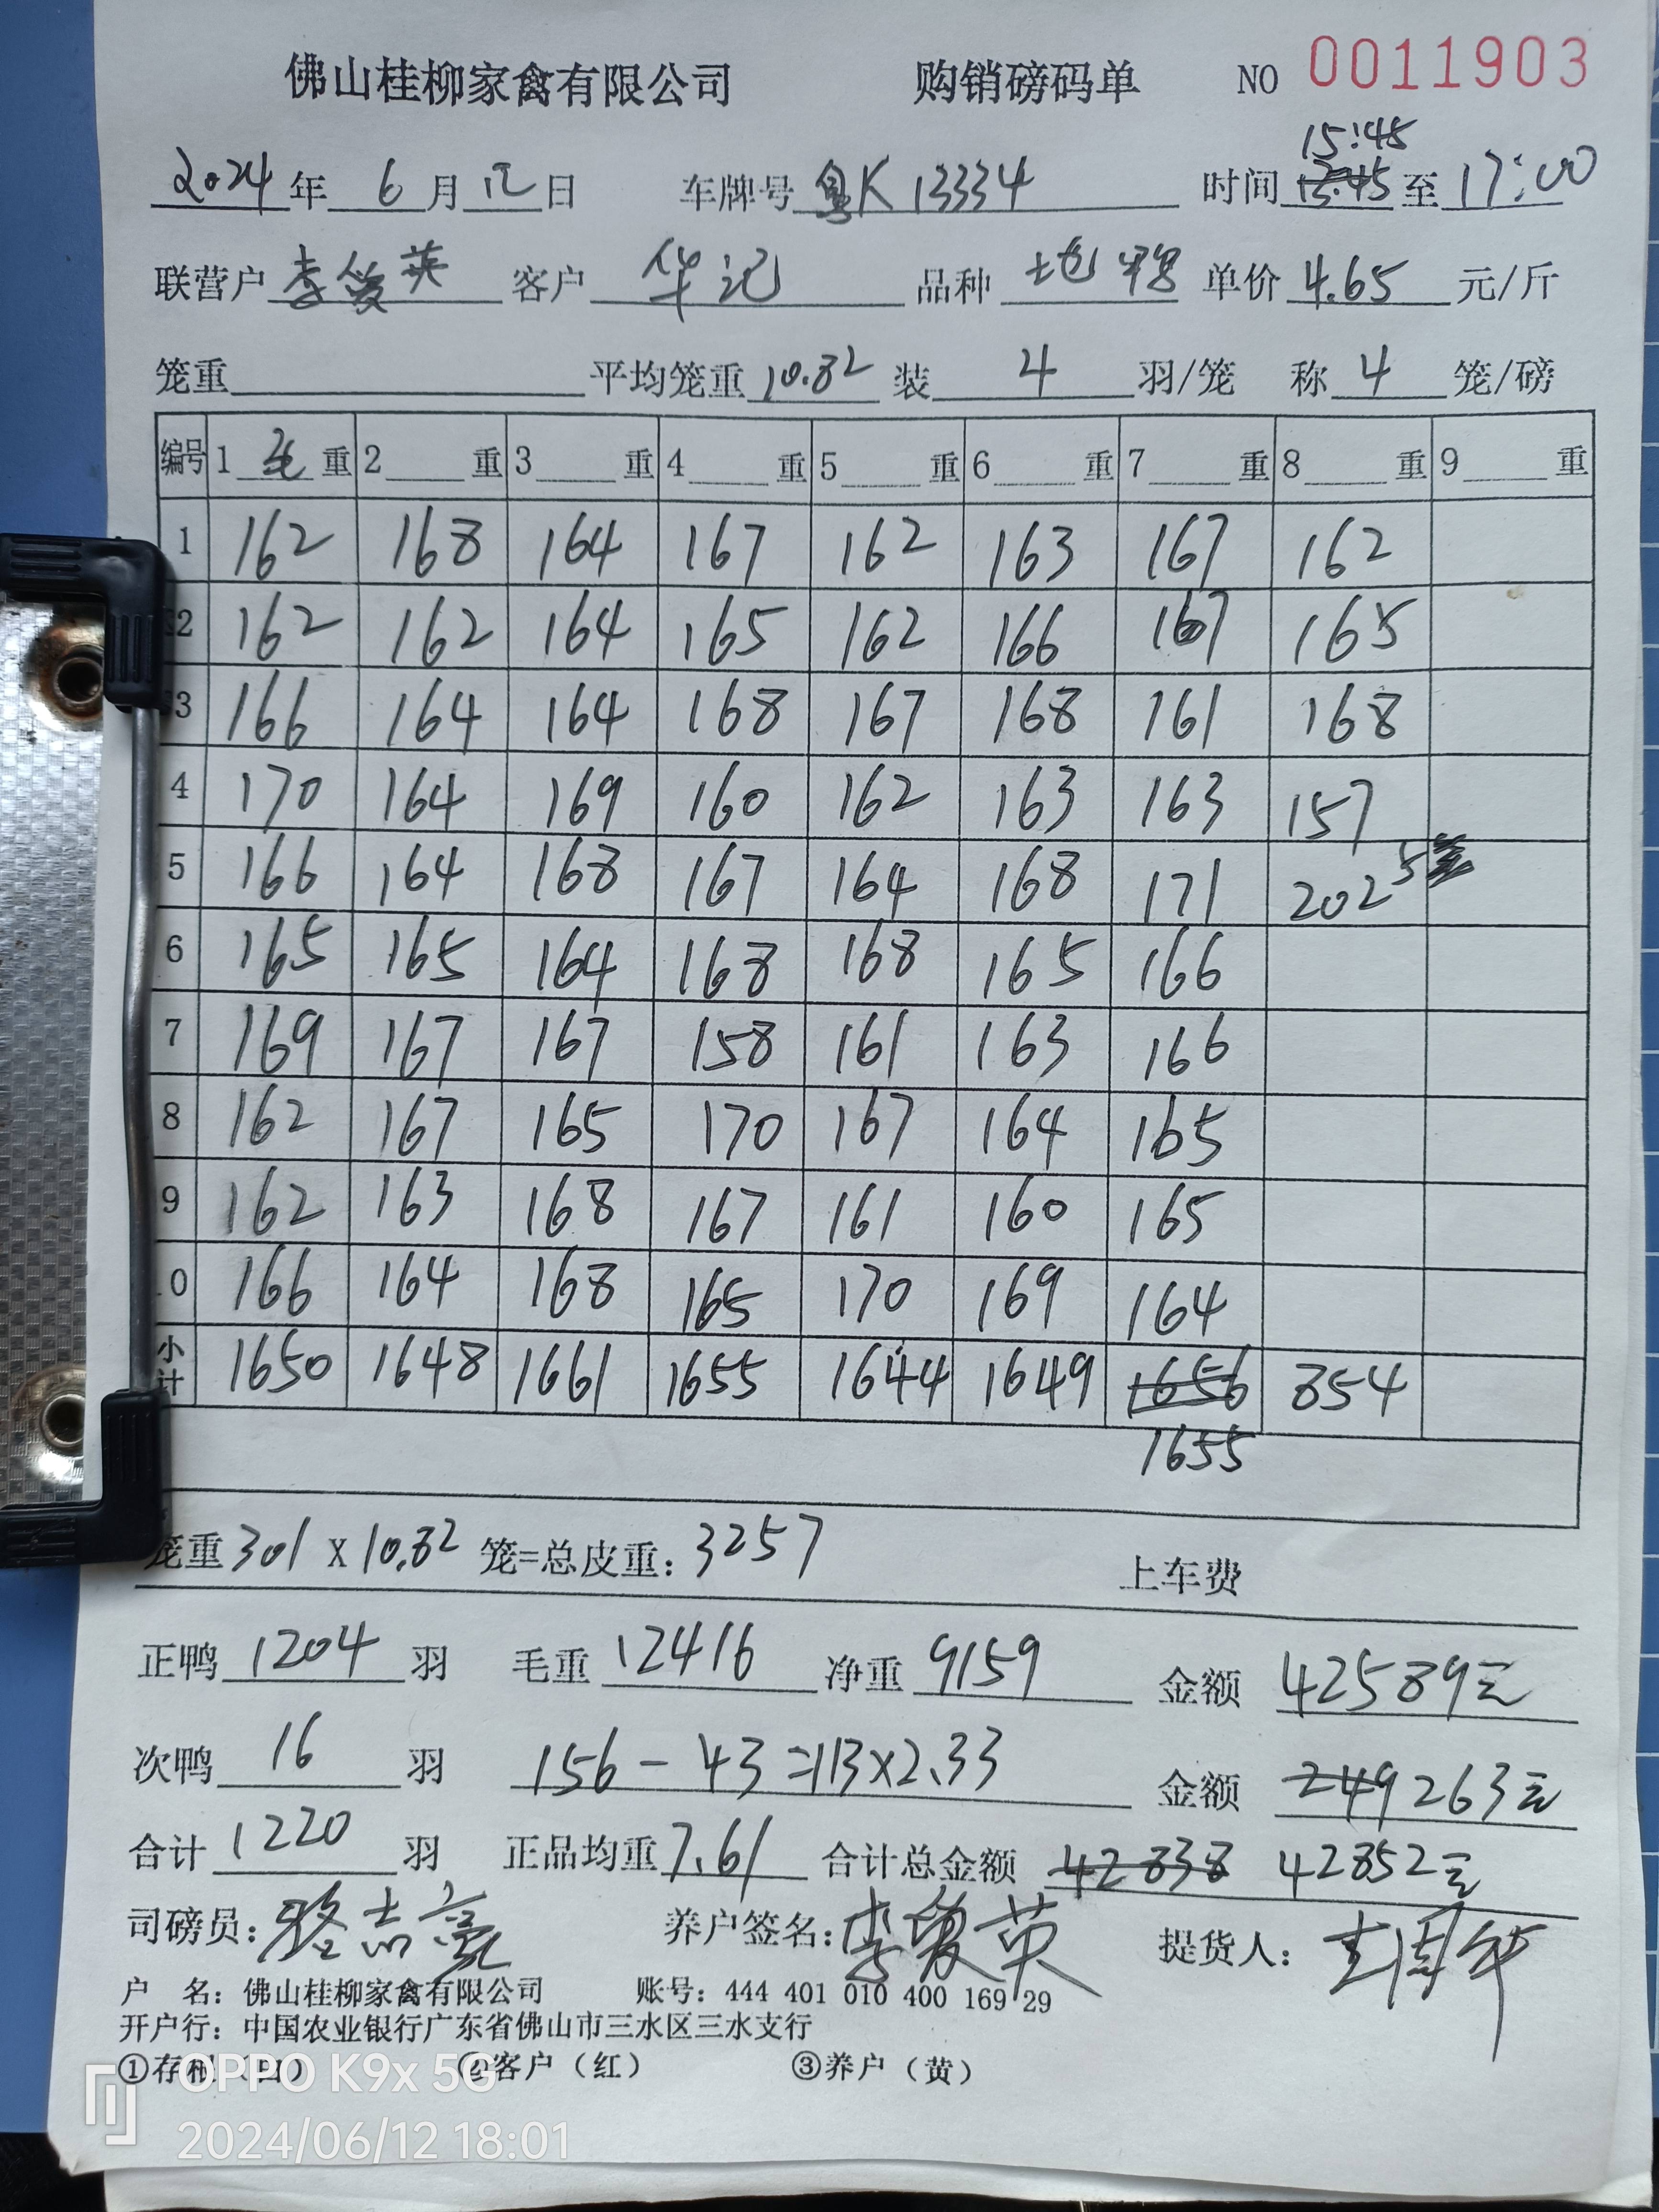 佛山桂柳家禽有限公司 购销磅码单 NO 0011903
15:45
2024年 6月 12日 车牌号 粤K 13334 时间 13:45 至 17:00
联营户 李爱英 客户 华记 品种 土包鸭 单价 4.65 元/斤
笼重 平均笼重 10.82 装 4 羽/笼 称 4 笼/磅
编号 1 毛 重 2 重 3 重 4 重 5 重 6 重 7 重 8 重 9 重
1 162 168 164 167 162 163 167 162
2 162 162 164 165 162 166 167 165
3 166 164 164 168 167 168 161 168
4 170 164 169 160 162 163 163 157
5 166 164 168 167 164 168 171 202 5笼
6 165 165 164 168 168 165 166
7 169 167 167 158 161 163 166
8 162 167 165 170 167 164 165
9 162 163 168 167 161 160 165
10 166 164 168 165 170 169 164
小计 1650 1648 1661 1655 1644 1649 1656 854
1655
笼重 301 X 10.82 笼=总皮重: 3257 上车费
正鸭 1204 羽 毛重 12416 净重 9159 金额 42589元
次鸭 16 羽 156-43=113×2.33 金额 249 263元
合计 1220 羽 正品均重 7.61 合计总金额 42838 42852元
司磅员: 骆志豪 养户签名: 李爱英 提货人:
户 名: 佛山桂柳家禽有限公司 账号: 444 401 010 400 169 29
开户行: 中国农业银行广东省佛山市三水区三水支行
①存根（白） ②客户（红） ③养户（黄）
OPPO K9x 5G
2024/06/12 18:01